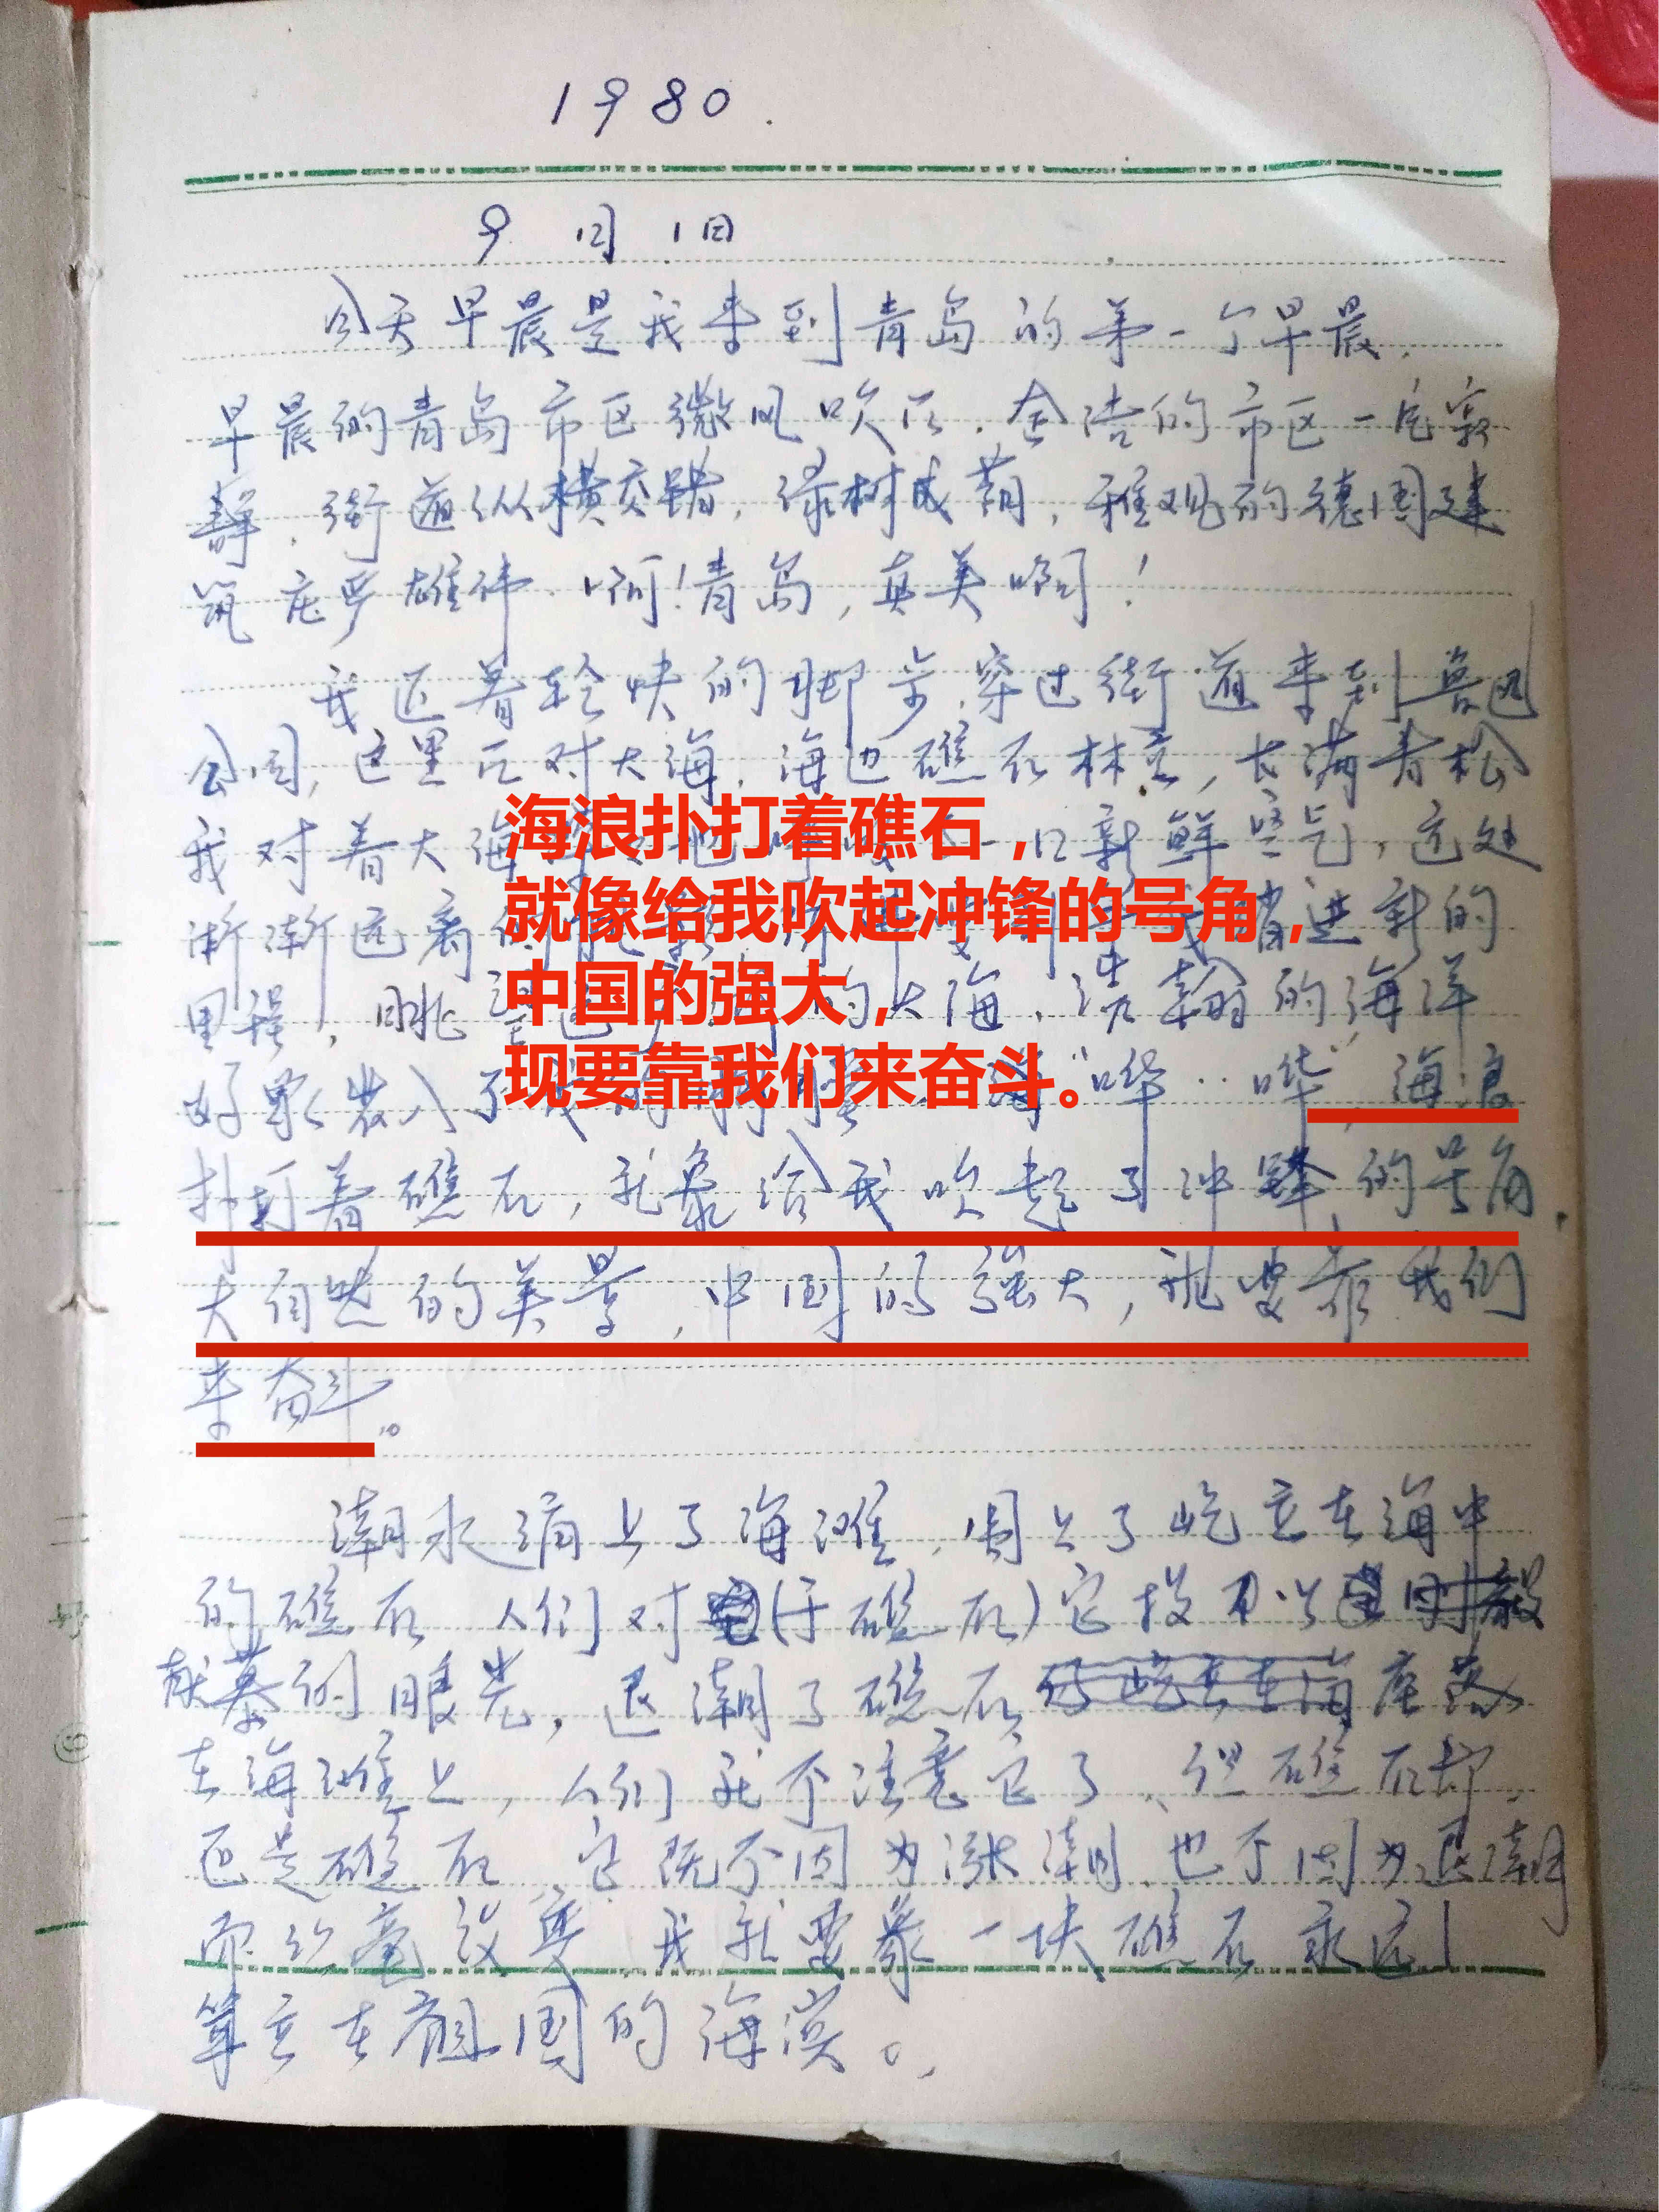 1980.
9月1日
今天早晨是我来到青岛的第一个早晨.
早晨的青岛市区微风吹.的市区一
静.街道纵横交错,绿树成荫,雅观的德国建
筑庄严雄伟.啊!青岛,真美啊!
我迈着轻快的脚步,穿过街道来到鲁迅
公园,这里面对大海.海边礁石林立,长满青松
我对着大海一口新鲜空气,远处
渐渐远离进新的
里程,眺的大海.浩翰的海洋
好象装入了我的"哗··哗",海浪
海浪扑打着礁石,
就像给我吹起冲锋的号角,
中国的强大,
现要靠我们来奋斗。
扑打着礁石,就象给我吹起了冲锋的号角.
大自然的美景,中国的强大,就要靠我们
来奋斗。
潮水涌上了海滩.围上了屹立在海中
的礁石人们对(于礁石)它投
慕的眼光,退潮了礁石座落
在海滩上,人们就不注意它了、但礁石却
还是礁石它既不因为涨潮.也不因为退潮
而丝毫改变.我就要象一块礁石永远
耸立在祖国的海滨。